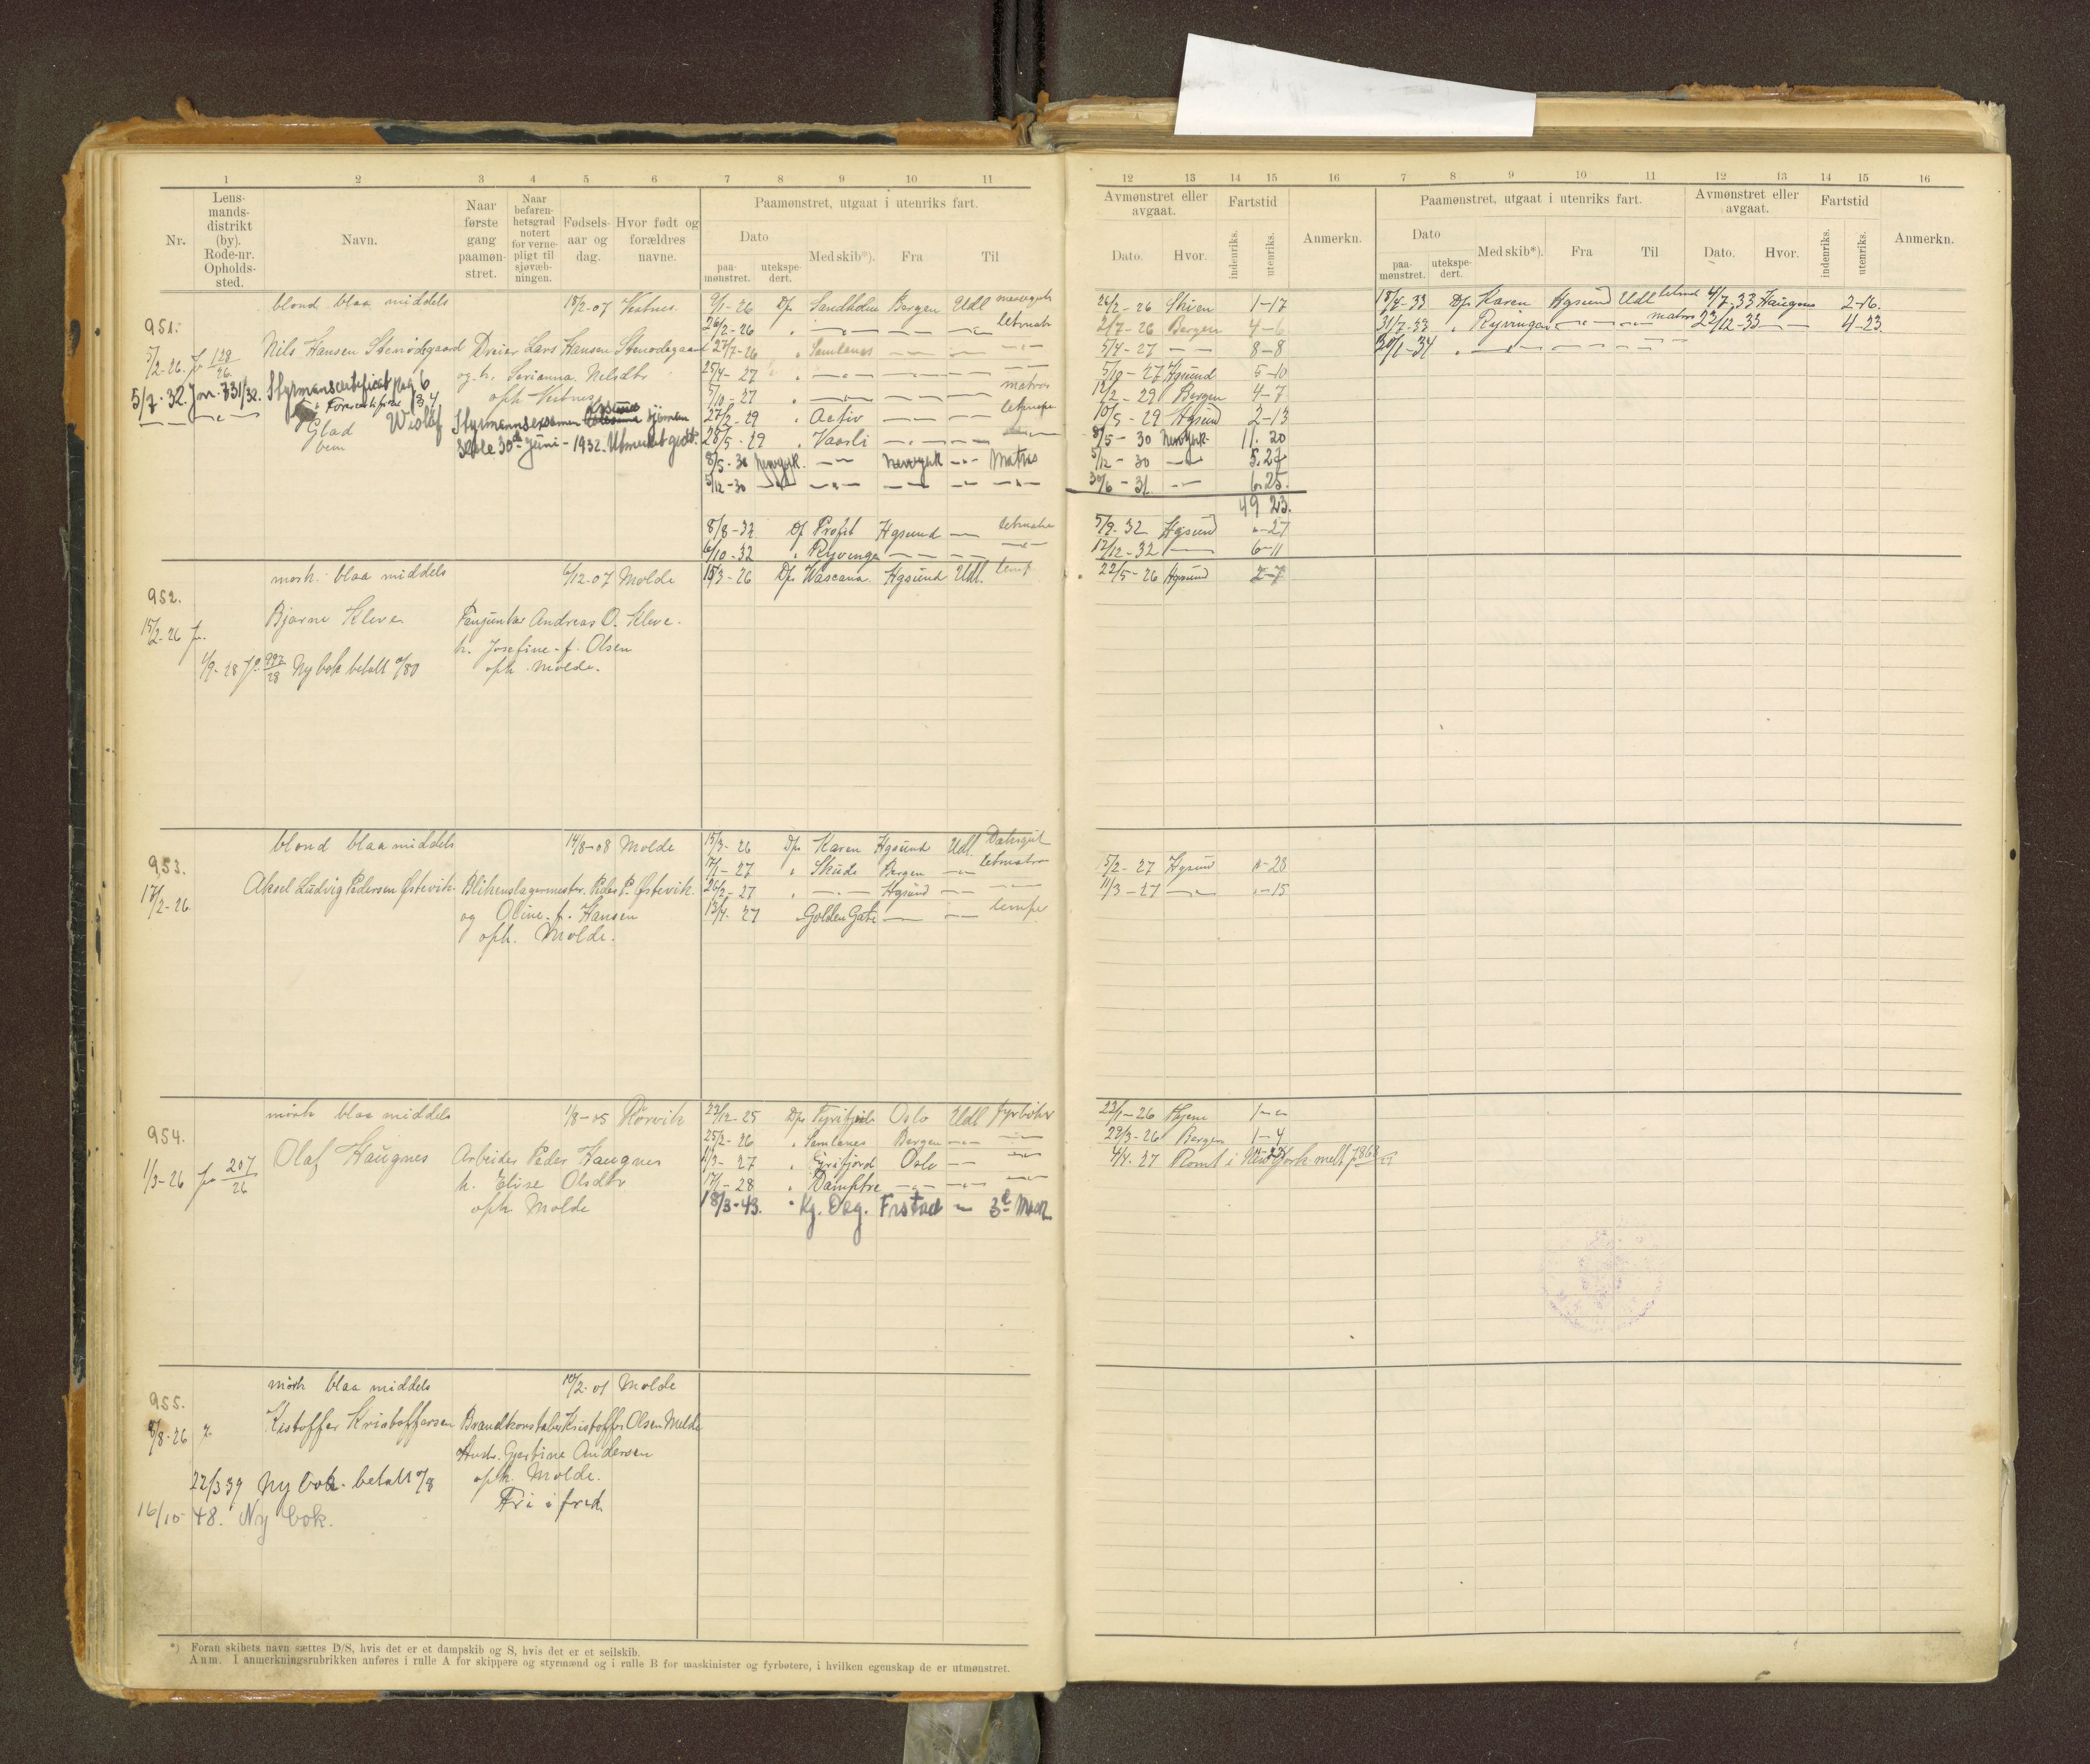 1 2 3 4 5 6 7 8 9 10 11
Nr.
Lens-
mands-
distrikt
(by).
Rode-nr.
Opholds-
sted.
Navn.
Naar
første
gang
paamøn-
stret.
Naar
befaren-
hetsgrad
notert
for verne-
pligt til
sjøvæb-
ningen.
Fødsels-
aar og
dag.
Hvor født og
forældres
navne.
Paamønstret, utgaat i utenriks fart.
Dato
paa-
mønstret.
utekspe-
dert.
Med skib*).
Fra
Til
951.
5/2-26. Jo 128/26
blond blaa middels 18/2-07 Vestnes
Nils Hansen Stenødegaard Dreier Lars Hansen Stenødegaard
og h. Serianna Nelsdtr
oph Vestnes
5/7-32. Jnr. 731/32. Styrmanscertificat pag 6
Glad
Styrmannseksamen Ålesund sjømann
skole 30te Juni - 1932. Utmerket godt.
9/1-26 D/s Sandholm Bergen Udl
26/2-26 " — " — — letmatr
27/7-26 " Samlanes — — —
25/4-27 " — — — —
5/10-27 " — — — matros
27/2-29 " Activ — —
28/5-29 " Vaasli — — —
8/5-30 Newyork. — Newyork — Matros
5/12-30 — — — — —
8/8-32 D/s Profit Hgsund — letmatr
6/10-32 " Ryvingen — — —
952.
15/2-26
mørk blaa middels 6/12-07 Molde
Bjarne Kleve Fanejunker Andreas O. Kleve.
h. Josefine f. Olsen
oph. Molde.
1/9-28 Jo 997/28 Ny bok betalt 0/80
15/3-26 D/s Wascana Hgsund Udl.
953.
17/2-26
blond blaa middels 14/8-08 Molde
Aksel Ludvig Pedersen Østevik. Blikenslagermester Peder P. Østevik.
og Oline f. Hansen
oph. Molde.
15/3-26 D/s Karen Hgsund Udl. Dæksgut
17/1-27 " Skude Bergen — letmatros
26/2-27 " — Hgsund — —
13/4-27 " Golden Gate — —
954.
1/3-26 Jo 207/26
mørk blaa middels 1/8-05 Rørvik
Olaf Haugnes Arbeider Peder Haugnes
h. Elise Olsdtr
oph Molde
22/12-25 D/s Tyrifjord Oslo Udl fyrbøter
25/2-26 " Samlanes Bergen — —
1/3-27 " Tyrifjord Oslo — —
17/1-28 " Damptre — — —
18/3-43. " Kg. Dag. Frstad — 3de Mask.
955.
mørk blaa middels 10/2-01 Molde
Kristoffer Kristoffersen Brandkonstabel Kristoffer Olsen Melde
Hust. Gjertine Andersen
oph. Molde.
Fri i fred.
22/3 39 Ny bok. betalt 0/8
16/10 48. Ny bok.
*) Foran skibets navn sættes D/S, hvis det er et dampskib og S, hvis det er et seilskib.
Anm. I anmerkningsrubrikken anføres i rulle A for skippere og styrmænd og i rulle B for maskinister og fyrbøtere, i hvilken egenskap de er utmønstret.
12 13 14 15 16 7 8 9 10 11 12 13 14 15 16
Avmønstret eller
avgaat.
Dato. Hvor.
Fartstid
indenriks.
utenriks.
Anmerkn.
Paamønstret, utgaat i utenriks fart.
Dato
paa-
mønstret.
utekspe-
dert.
Med skib*).
Fra
Til
Avmønstret eller
avgaat.
Dato. Hvor.
Fartstid
indenriks.
utenriks.
Anmerkn.
26/2-26 Skien 1-17
2/7-26 Bergen 4-6
5/4-27 — 8-8
5/10-27 Hgsund 5-10
12/2-29 Bergen 4-7
10/5-29 Hgsund 2-13
8/5-30 Newyork. 11. 20
5/12-30 — 5. 27
30/6-31. — 6. 25.
49 23.
5/9-32 Hgsund "-27
12/12-32 — 6-11
18/4-33 D/s Karen Hgsund Udl 4/7-33 Haugesund 2-16.
31/7-33 " Ryvingen — — matros 23/12-33 — 4-23
20/1-34 " — — —
22/5-26 Hgsund 2-7
5/2-27 Hgsund
11/3-27 — "-15
23/1-26 Hjem 1-"
29/3-26 Bergen 1-4
4/4-27 Rømt i New York